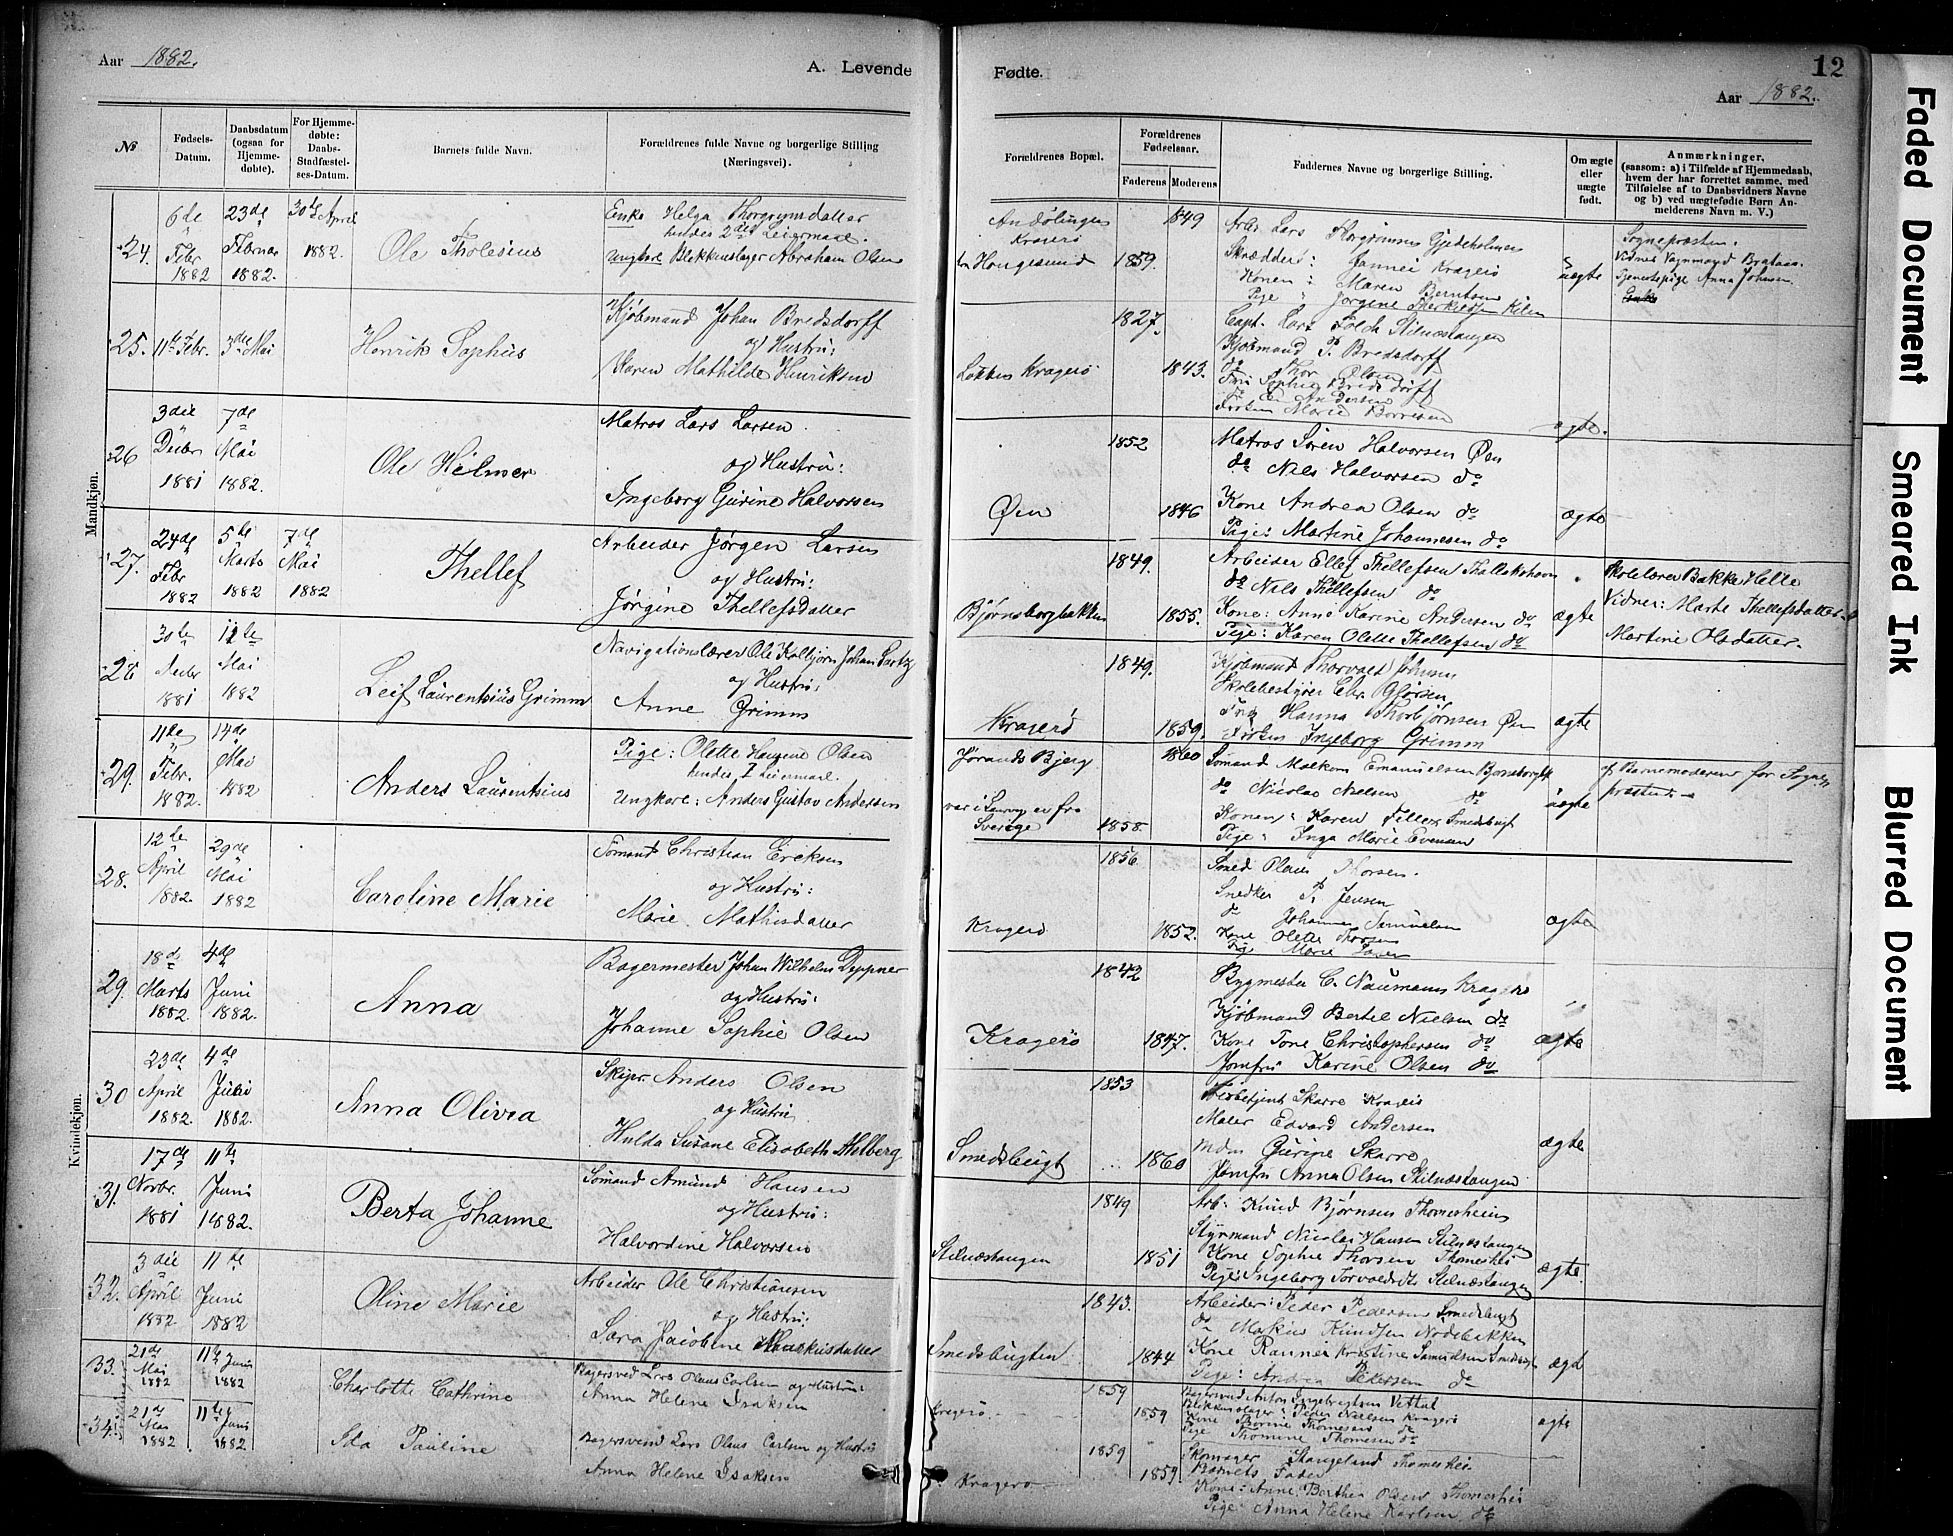 Aar 1882.
A. Levende
Fødte.
12
Aar 1882.
№
Fødsels-
Datum.
Daabsdatum
(ogsaa for
Hjemme-
døbte).
For Hjemme-
døbte:
Daabs-
Stadfæstel-
ses-Datum.
Barnets fulde Navn.
Forældrenes fulde Navne og borgerlige Stilling
(Næringsvei).
Forældrenes Bopæl.
Forældrenes
Fødselsaar.
Faderens
Moderens
Faddernes Navne og borgerlige Stilling.
Om ægte
eller
uægte
født.
Anmærkninger.
(saasom: a) i Tilfælde af Hjemmedaab,
hvem der har forrettet samme, med
Tilføielse af to Daabsvidners Navne
og b) ved uægtefødte Børn An-
melderens Navn m. V.)
Mandkjøn.
24.
6de
Febr
1882
23de
Februar
1882.
30te April
1882.
Ole Tholesius
Enke Helga Thorgrimsdatter
hendes 2det Leiermaal.
Ungkarl Blikkenslager Abraham Olsen
Kragerø
1849
1859.
Arb. Lars Thorgrimsen Gjedeholmen
Skrædder: Jannei Kragerø
Konen: Maren Berntsen
Pige: Jørgine
uægte
Sognepræsten.
Tjenestepige Anna Johnsen.
25.
11te Febr.
3die Mai
Henrik Sophus
Kjøbmand Johan Bredsdorff
og Hustru:
Karen Mathilde Henriksen
Løkken Kragerø
1827.
1843.
Capt. Lars Foldk Stilnæstangen
Kjøbmand P. Bredsdorff
do Thor Olsen
Fru Sophie Bredsdorff
Marie
ægte.
26
3die
Decbr
1881
7de
Mai
1882.
Ole Hilmer
Matros Lars Larsen
og Hustru:
Ingeborg Gurine Halvorsen
Øen
1852
1846
Matros Søren Halvorsen Øen
do Nils Halvorsen do
Kone Andrea Olsen do
Pige: Martine Johannesen do
ægte
27.
24de
Febr
1882
5te
Marts
1882
7de
Mai
1882
Thellef
Arbeider Jørgen Larsen
og Hustru:
Jørgine Thellefsdatter
Bjørnsborgbakken
1849.
1855.
Arbeider Ellef Thellefsen Thallakshavn
do Nils Thellefsen do
Kone: Anne Karine Andersen do
Pige: Karen Olette Thellefsen do
ægte
Skolelærer Bakke Helle
Vidner: Marte Thellefsdatter
Martine Olsdatter.
28
30te
Decbr
1881
12te
Mai
1882
Leif Laurentsius Grimm
Navigationslærer Ole Kolbjørn Johan Lartz
og Hustru:
Anne Grimm
Kragerø
1849.
1859.
Kjøbmand Thorvald Johnsen
Skolebestyrer Chr. Gløersen
Fru Hanna Thorbjørnsen Øen
Frøken Ingeborg Grimm
ægte
29.
11te
Febr.
1882.
14de
Mai
1882
Anders Laurentsius
Pige: Olette Haugene Olsen
hendes I Leiermaal.
Ungkarl: Anders Gustav Andersen
Jørands Bjerg
Sverige
1860
1858.
Sømand Malkom Emanuelsen
do Nicolas Nielsen do
Konen: Karen Smedsbugt
Pige: Inga Marie Evensen
uægte
af Barnemoderen for Sogne-
præsten
Kvindekjøn.
28.
12te
April
1882.
29de
Mai
1882
Caroline Marie
Sømand Christian Eriksen
og Hustru:
Marie Mathisdatter
Kragerø
1856
1852.
Smed Olaus Thorsen.
Snedker P. Jensen
do Johannes Samuelsen
Kone Olette Thorsen
Pige Marie
ægte
29.
18de
Marts
1882.
4de
Juni
1882.
Anna
Bagermester Johan Wilhelm Deppner
og Hustru:
Johanne Sophie Olsen
Kragerø
1842
1847.
Bygmester C. Naumann Kragerø
Kjøbmand Bertel Nielsen do
Kone Tone Christophersen do
Jomfru Karine Olsen do
ægte
30
23de
April
1882
4de
Juni
1882.
Anna Olivia
Skipr. Anders Olsen
og Hustru
Hulda Susane Elisabeth Ahlberg
Smedsbugt
1853
1860
Skarre Kragerø
Maler Edvard Andersen
Mdm Gurine Skarre
Jomfru Anna Olsen Stilnæstangen
ægte
31.
17de
Novbr.
1881
11te
Juni
1882.
Berta Johanne
Sømand Amund Hansen
og Hustru:
Halvordine Halvorsen
Stilnæstangen
1849
1851
Arb: Knud Bjørnsen Thomesheien
Styrmand Nicolai Hansen Stilnæstangen
Kone Sophie Thorsen Thomeshei
Pige: Ingeborg Torvaldsdtr Stilnæstangen
ægte
32.
3die
April
1882
11te
Juni
1882
Oline Marie
Arbeider Ole Christiansen
og Hustru:
Sara Jacobine Markusdatter
Smedsbugten
1843.
1844
Arbeider: Peder Pedersen Smedsbugt
do Markus Knudsen Nodebakken
Kone Rannei Kristine Samuelsen Smedsbugt
Pige: Andrea Pedersen do
ægt
33.
21de
Mai
1882
11te Juni
1882
Charlotte Cathrine
Bagersvend Lars Olaus Carlsen og Hustru:
Anna Helene Isaksen
Kragerø
1859
1859
Bagersvend Anton Ingebregtsen Vettal
Blikkenslager: Peder Nielsen Kragerø
Kone Thomesen do
Pige Thomine Thomesen do
ægte
34.
21de
Mai
1882
11te
Juni
1882
Ida Pauline
Bagersvend Lars Olaus Carlsen og Hustru
Anna Helene Isaksen
Kragerø
1859
1859
Skomager Stangeland Thomeshei
Barnets Fader
Kone: Anne Berthea Olsen Thomeshei
Pige: Anna Helene Karlsen do
Faded Document
Smeared Ink
Blurred Document